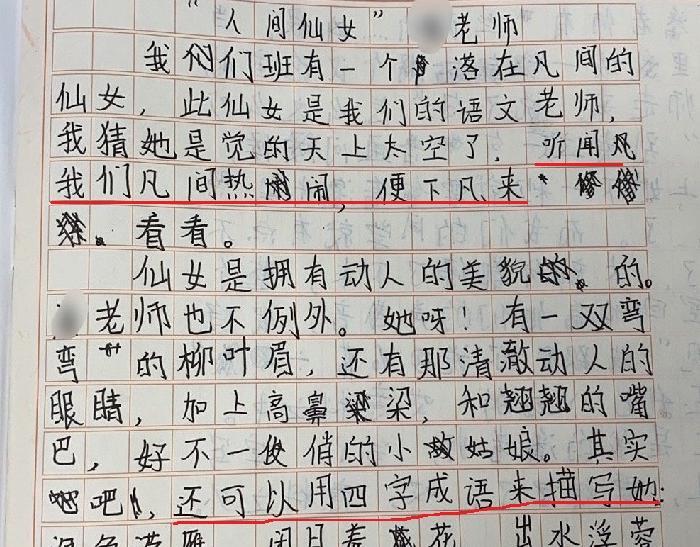 “人间仙女” 老师
我们们班有一个落在凡间的
仙女，此仙女是我们的语文老师，
我猜她是觉的天上太空了，听闻凡
我们凡间热闹，便下凡来
看看。
仙女是拥有动人的美貌的。
老师也不例外。她呀！有一双弯
弯的柳叶眉，还有那清澈动人的
眼睛，加上高鼻梁，和翘翘的嘴
巴，好不一俊俏的小姑娘。其实
吧，还可以用四字成语来描写她：
闭月羞花 出水浮蓉